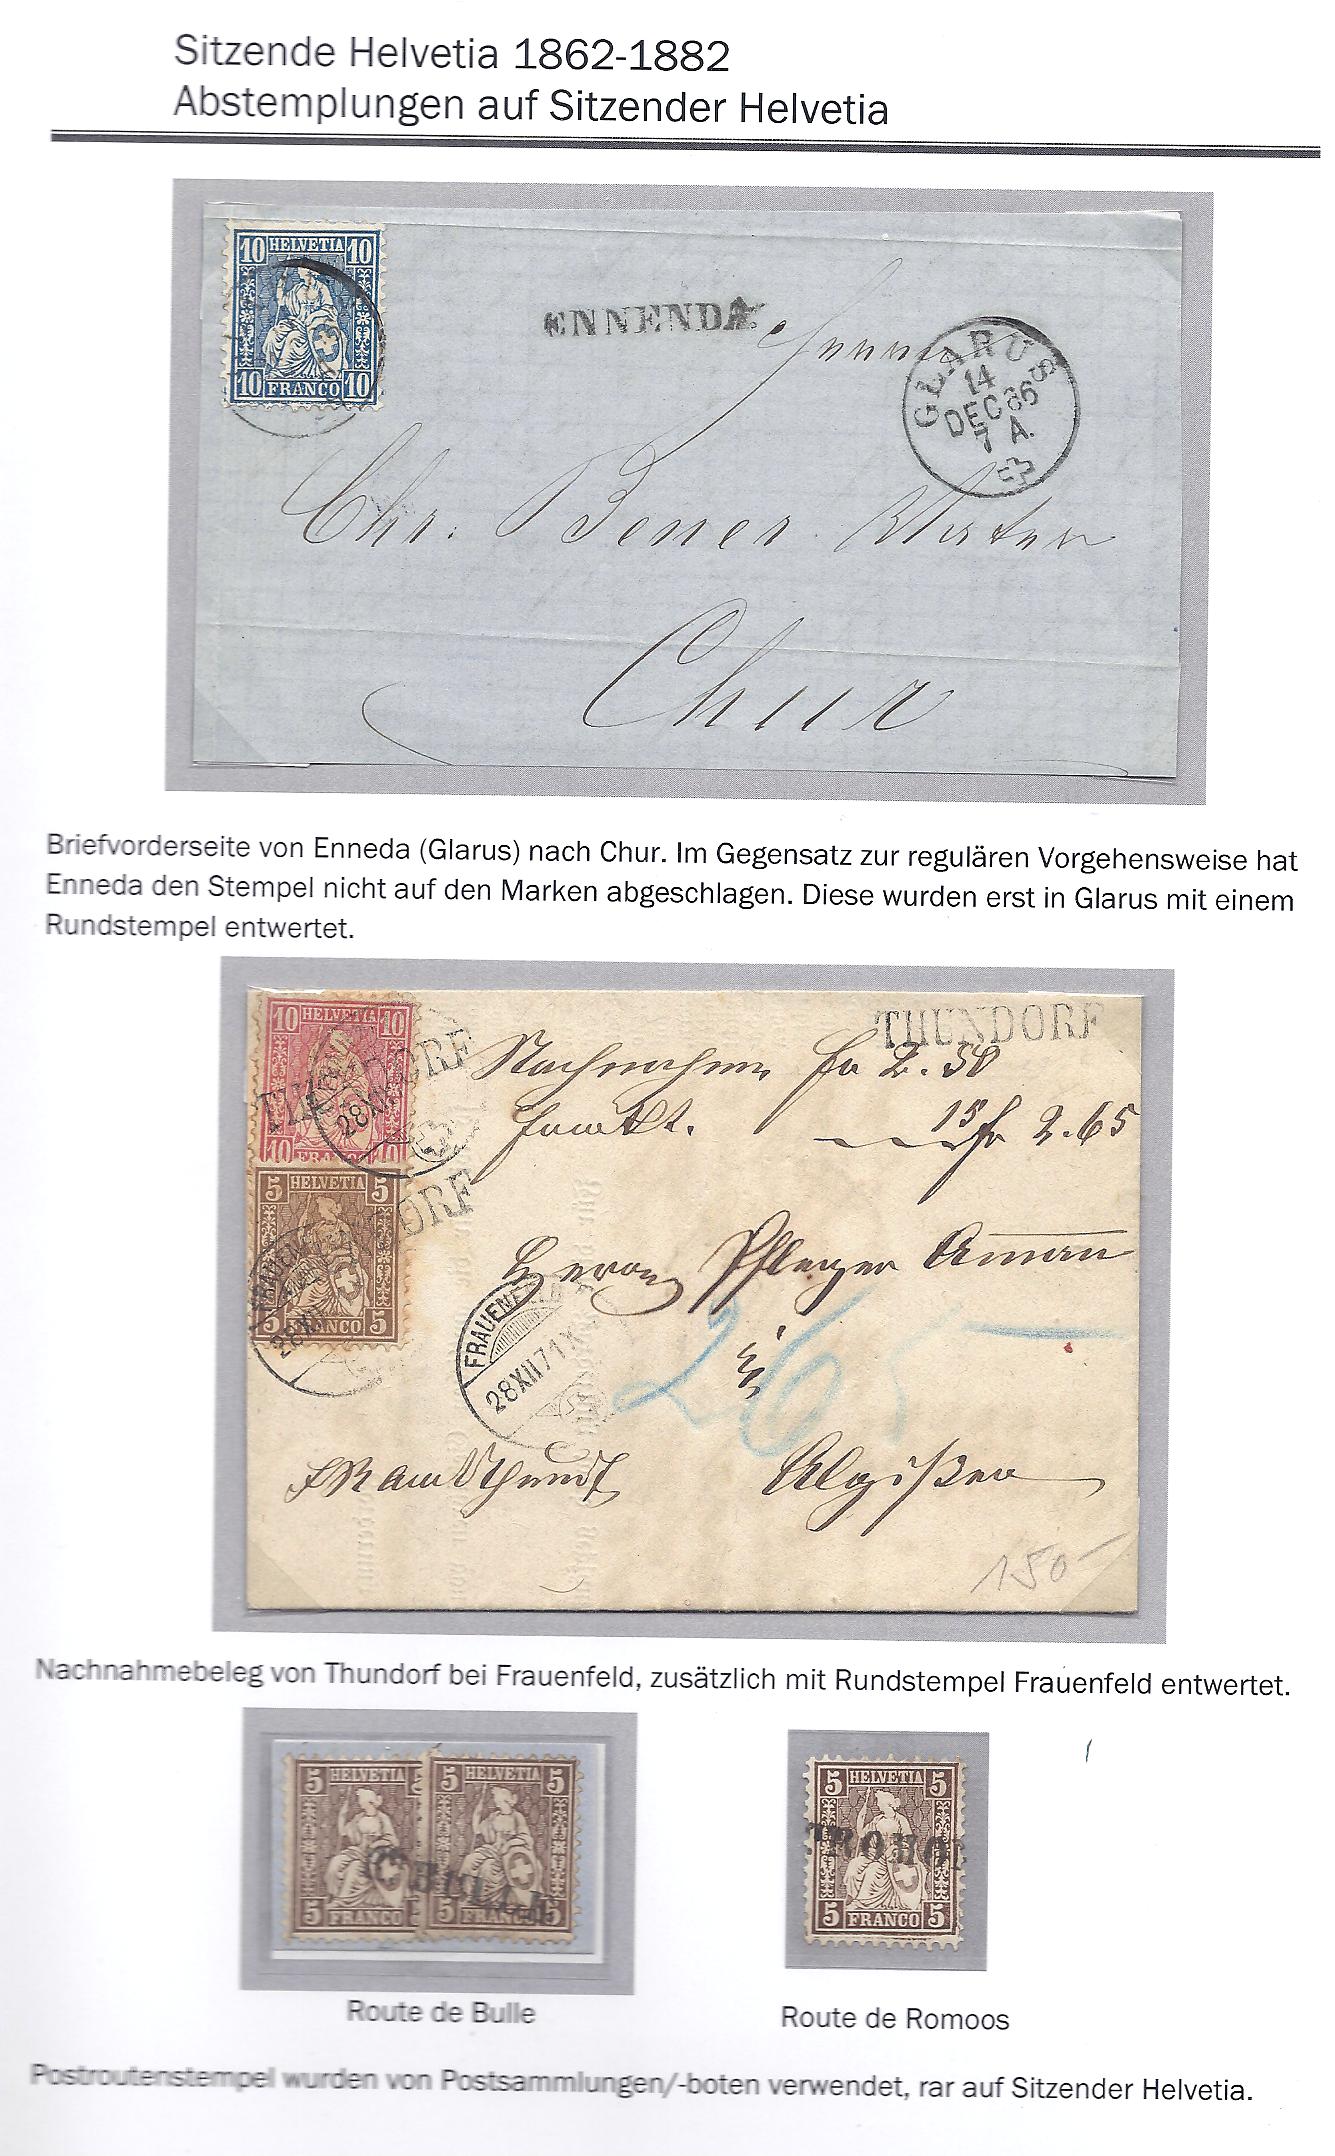 Sitzende Helvetia 1862-1882
Abstemplungen auf Sitzender Helvetia
10 HELVETIA 10
10 FRANCO 10
ENNENDA
GLARUS
14
DEC 86
7 A.
Chr. Bener
Chur
Briefvorderseite von Enneda (Glarus) nach Chur. Im Gegensatz zur regulären Vorgehensweise hat
Enneda den Stempel nicht auf den Marken abgeschlagen. Diese wurden erst in Glarus mit einem
Rundstempel entwertet.
THUNDORF
10 HELVETIA 10
THUNDORF
28 XII
10 FRANCO 10
Nachnahme fr 2.50
15 fr 2.65
5 HELVETIA 5
DORF
FRAUENFELD
28 XII
5 FRANCO 5
Herrn Pfleger Amann
FRAUENFELD
28 XII 71 X
26
150-
Nachnahmebeleg von Thundorf bei Frauenfeld, zusätzlich mit Rundstempel Frauenfeld entwertet.
5 HELVETIA 5 HELVETIA 5
BULLE
5 FRANCO 5 FRANCO 5
5 HELVETIA 5
ROMO
5 FRANCO 5
Route de Bulle
Route de Romoos
Postroutenstempel wurden von Postsammlungen/-boten verwendet, rar auf Sitzender Helvetia.